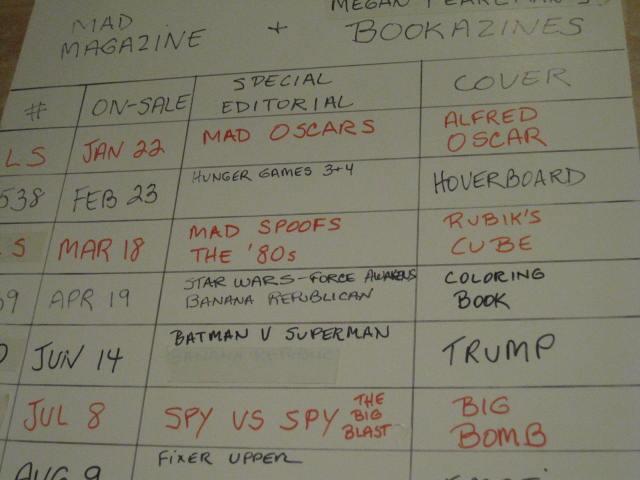 MAD MEGAN PEARLMAN'S
MAGAZINE + BOOKAZINES
# ON-SALE SPECIAL EDITORIAL COVER
LS JAN 22 MAD OSCARS ALFRED OSCAR
538 FEB 23 HUNGER GAMES 3+4 HOVERBOARD
S MAR 18 MAD SPOOFS THE '80s RUBIK'S CUBE
9 APR 19 STAR WARS-FORCE AWAKENS BANANA REPUBLICAN COLORING BOOK
JUN 14 BATMAN V SUPERMAN TRUMP
JUL 8 SPY VS SPY THE BIG BLAST BIG BOMB
AUG 9 FIXER UPPER